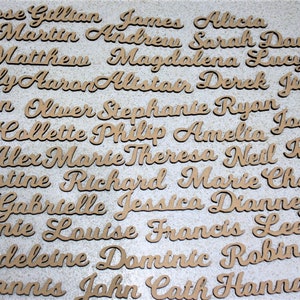 ose Gillian James Alicia
Martin Andrew Sarah Da
Matthew Magdalena Luc
ly Aaron Alistair Derek
n Oliver Stephanie Ryan
Collette Philip Amelia
Alex Marie Theresa Neil
tine Richard Marie Ch
Gabrielle Jessica Dianne
nie Louise Francis Le
adeleine Dominic Robin
annis John Cath Hanna